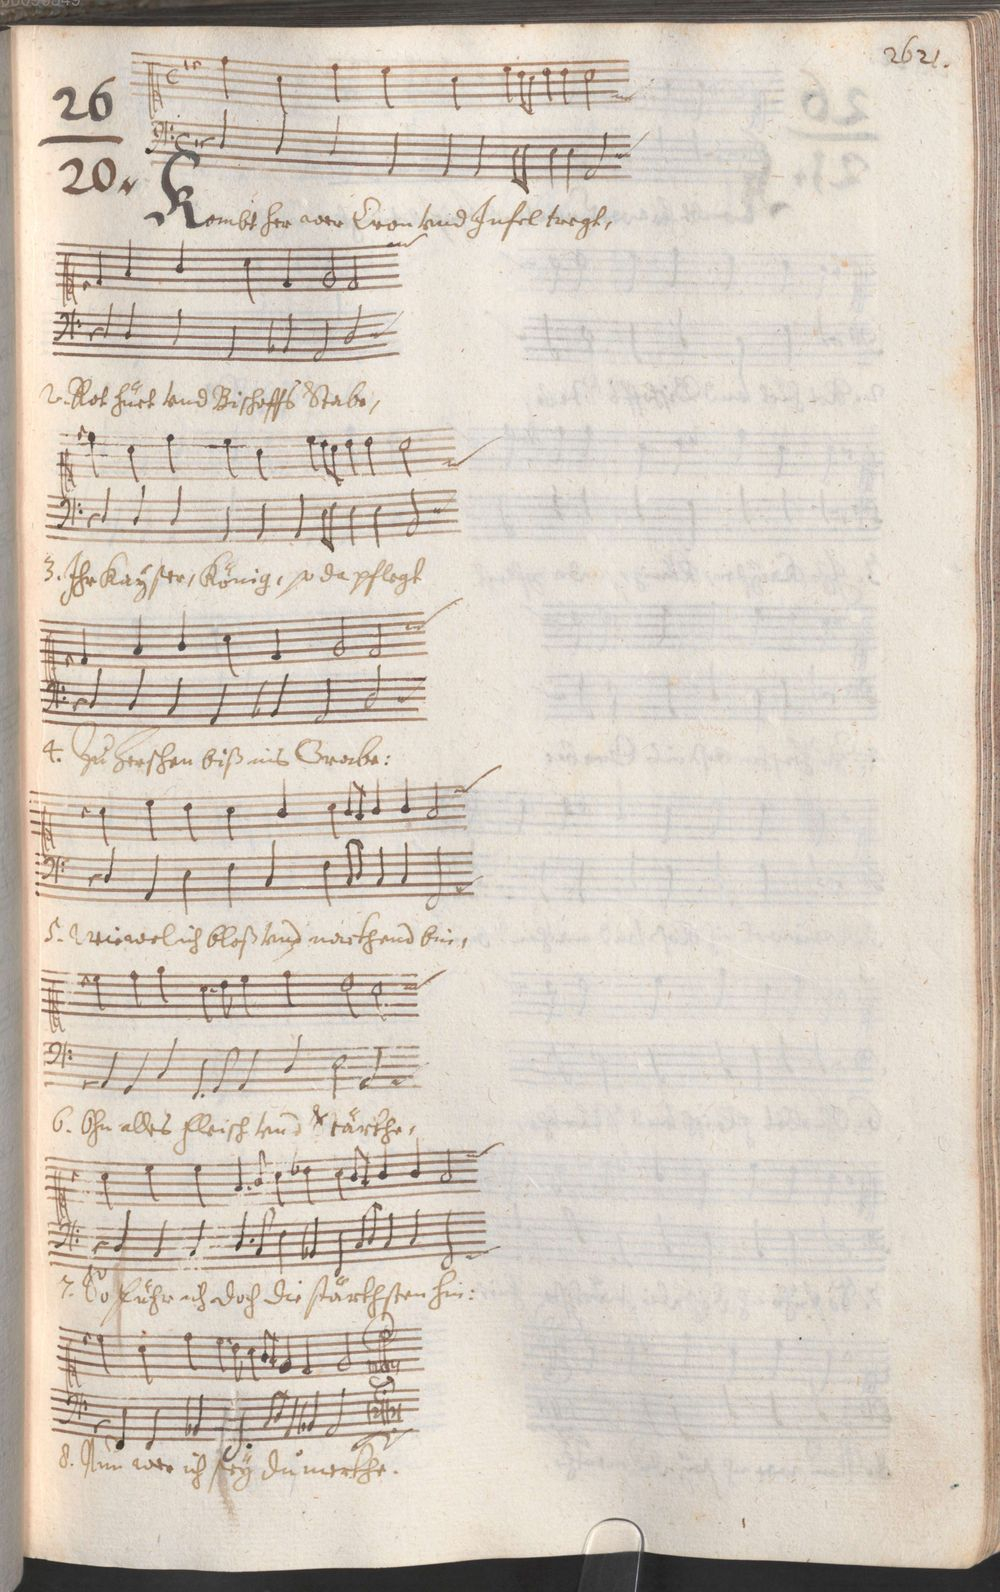 2621.
26
20.
Kombt her wer Cron vnd Infel tregt,
2. Rot hüet vnd Bischoffs Stabe,
3. Ihr Kaÿser, König, so da pflegt
4. Zu herschen biß ins Grabe:
5. Wiewol ich bloß vnd nackhend bin,
6. Ohn alles fleisch vnd Stärkhe,
7. So führ ich doch die stärkhsten hin:
8. Nun wer ich seÿ du merkhe.